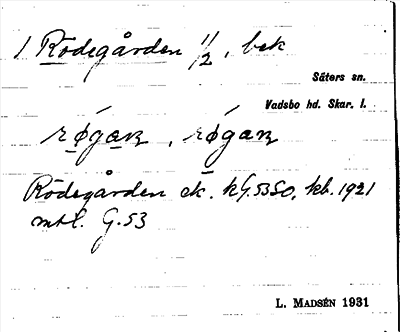 1 Rödegården 1/2, bek
Säters sn.
Vadsbo hd. Skar. l.
Rödegården ek. kG.53SO, kb. 1921
mtl. G.53
L. MADSÉN 1931